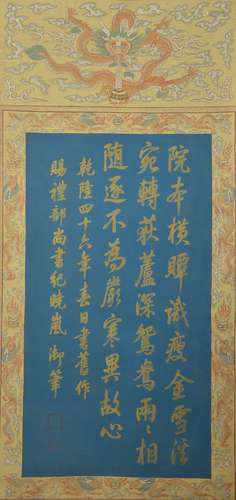 院本橫軸識瘦金雪溪
宛轉荻蘆深鴛鴦兩〻相
隨逐不為嚴寒異故心
乾隆四十六年春日書舊作
賜禮部尚書紀曉嵐 御筆